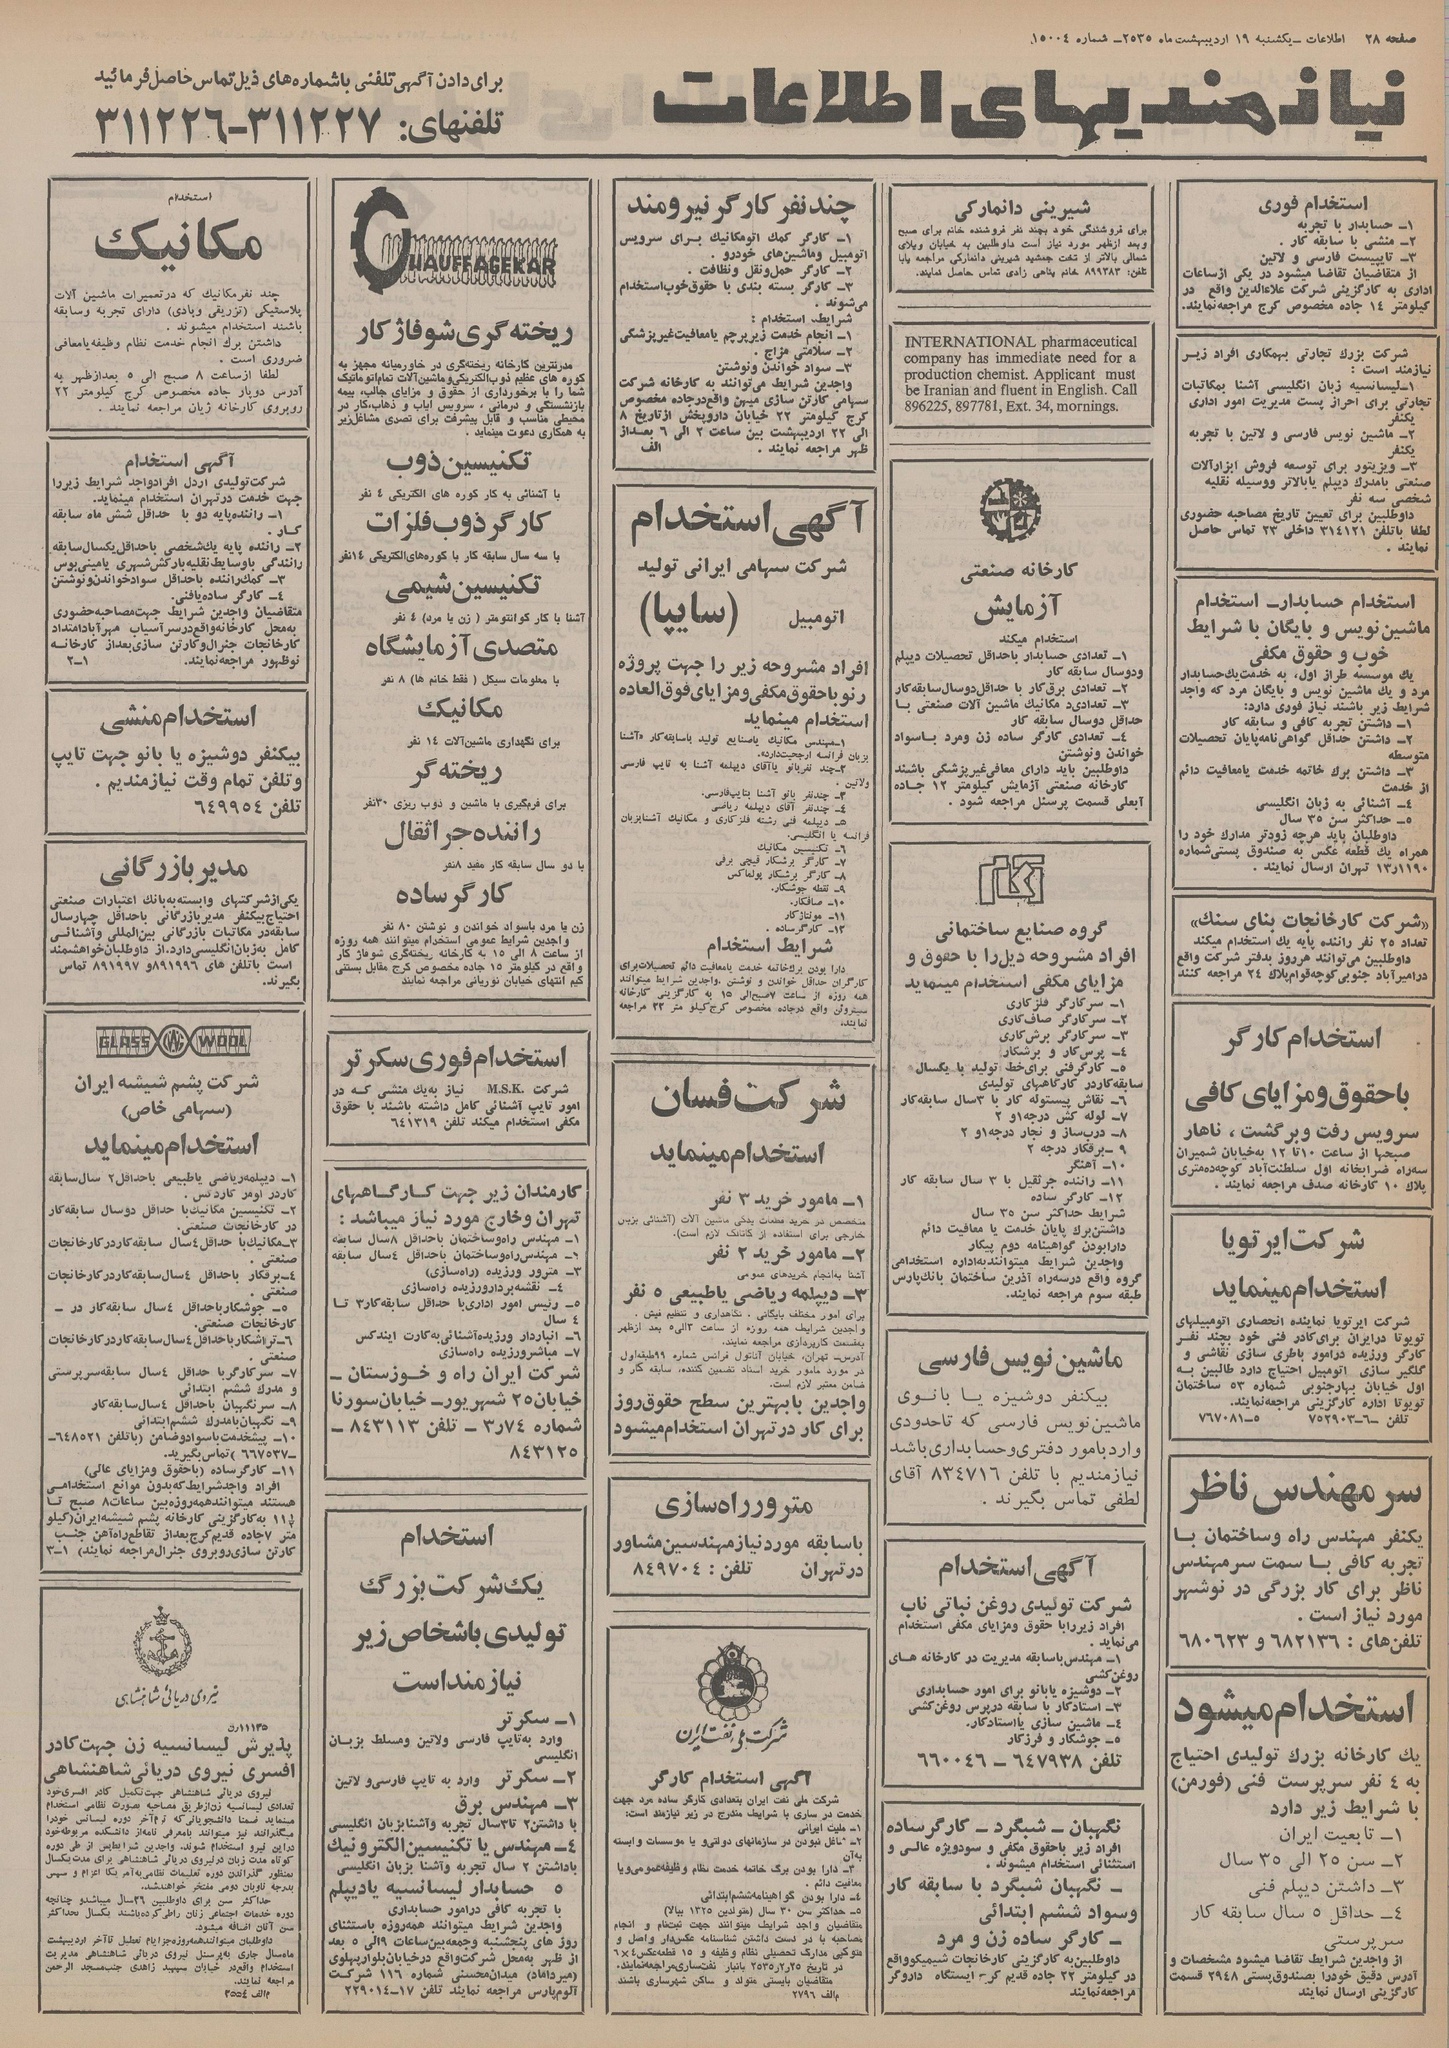 صفحه ۲۸ اطلاعات ـ یکشنبه ۱۹ اردیبهشت ماه ۲۵۳۵ـ شماره ۱۵۰۰۴
نیازمندیهای اطلاعات
برای دادن آگهی تلفنی باشماره‌های ذیل تماس حاصل فرمائید
تلفنهای: ۳۱۱۲۲۷-۳۱۱۲۲۶
استخدام فوری
۱ـ حسابدار با تجربه
۲ـ منشی با سابقه کار .
۳ـ تایپیست فارسی و لاتین
از متقاضیان تقاضا میشود در یکی ازساعات
اداری به کارگزینی شرکت علاءالدین واقع در
کیلومتر ۱۴ جاده مخصوص کرج مراجعه‌نمایند.
شرکت بزرک تجارتی بهمکاری افراد زیر
نیازمند است :
۱ـلیسانسیه زبان انگلیسی آشنا بمکاتبات
تجارتی برای احراز پست مدیریت امور اداری
یکنفر
۲ـ ماشین نویس فارسی و لاتین با تجربه
یکنفر
۳ـ ویزیتور برای توسعه فروش ابزارآلات
صنعتی بامدرک دیپلم یابالاتر ووسیله نقلیه
شخصی سه نفر
داوطلبین برای تعیین تاریخ مصاحبه حضوری
لطفا باتلفن ۳۱۴۱۲۱ داخلی ۲۳ تماس حاصل
نمایند .
استخدام حسابدارـ استخدام
ماشین‌نویس و بایگان با شرایط
خوب و حقوق مکفی
یك موسسه طراز اول، به خدمت‌یك‌حسابدار
مرد و یك ماشین نویس و بایگان مرد که واجد
شرایط زیر باشند نیاز فوری دارد:
۱ـ داشتن تجربه کافی و سابقه کار
۲ـ داشتن حداقل گواهی‌نامه‌پایان تحصیلات
متوسطه
۳ـ داشتن برك خاتمه خدمت یامعافیت دائم
از خدمت
۴ـ آشنائی به زبان انگلیسی
۵ـ حداکثر سن ۳۵ سال
داوطلبان باید هرچه زودتر مدارك خود را
همراه یك قطعه عکس به صندوق پستی‌شماره
۱۳ر۱۱۹۰ تهران ارسال نمایند .
«شرکت کارخانجات بنای سنك»
تعداد ۲۵ نفر راننده پایه یك استخدام میکند
داوطلبین می‌توانند هرروز بدفتر شرکت واقع
درامیرآباد جنوبی‌کوچه‌قوام‌پلاك ۲۴ مراجعه کنند
استخدام کارگر
باحقوق‌ومزایای کافی
سرویس رفت وبرگشت ، ناهار
صبحها از ساعت ۱۰تا ۱۲ به‌خیابان شمیران
سه‌راه ضرابخانه اول سلطنت‌آباد کوچه‌ده‌متری
پلاك ۱۰ کارخانه صدف مراجعه نمایند .
شرکت ایرتویا
استخدام مینماید
شرکت ایرتویا نماینده انحصاری اتومبیلهای
تویوتا درایران برای‌کادر فنی خود بچند نفر
کارگر ورزیده درامور باطری سازی نقاشی و
گلگیر سازی اتومبیل احتیاج دارد طالبین به
اول خیابان بهارجنوبی شماره ۵۳ ساختمان
تویوتا اداره کارگزینی مراجعه‌نمایند.
تلفن ـ۶ـ۷۵۲۹۰۳ ۵ـ۷۶۷۰۸۱
سرمهندس ناظر
یکنفر مهندس راه وساختمان با
تجربه کافی با سمت سرمهندس
ناظر برای کار بزرگی در نوشهر
مورد نیاز است .
تلفن‌های : ۶۸۲۱۳۶ و ۶۸۰۶۲۳
استخدام میشود
یك کارخانه بزرك تولیدی احتیاج
به ۴ نفر سرپرست فنی (فورمن)
با شرایط زیر دارد
۱ـ تابعیت ایران
۲ـ سن ۲۵ الی ۳۵ سال
۳ـ داشتن دیپلم فنی
۴ـ حداقل ۵ سال سابقه کار
سرپرستی
از واجدین شرایط تقاضا میشود مشخصات و
آدرس دقیق خودرا بصندوق‌پستی ۲۹۴۸ قسمت
کارگزینی ارسال نمایند
شیرینی دانمارکی
برای فروشندگی خود بچند نفر فروشنده خانم برای صبح
وبعد ازظهر مورد نیاز است داوطلبین به خیابان ویلای
شمالی بالاتر از تخت جمشید شیرینی دانمارکی مراجعه یابا
تلفن: ۸۹۹۳۸۳ خانم پناهی زادی تماس حاصل نمایند.
INTERNATIONAL pharmaceutical
company has immediate need for a
production chemist. Applicant must
be Iranian and fluent in English. Call
896225, 897781, Ext. 34, mornings.
کارخانه صنعتی
آزمایش
استخدام میکند
۱ـ تعدادی حسابدار باحداقل تحصیلات دیپلم
ودوسال سابقه کار
۲ـ تعدادی برق‌کار با حداقل‌دوسال‌سابقه‌کار
۳ـ تعدادی‌د مکانیك ماشین آلات صنعتی با
حداقل دوسال سابقه کار
۴ـ تعدادی کارگر ساده زن ومرد باسواد
خواندن ونوشتن
داوطلبین باید دارای معافی‌غیرپزشگی باشند
کارخانه صنعتی آزمایش کیلومتر ۱۲ جاده
آبعلی قسمت پرسنل مراجعه شود .
گروه صنایع ساختمانی
افراد مشروحه ذیل‌را با حقوق و
مزایای مکفی استخدام مینماید
۱ـ سرکارگر فلزکاری
۲ـ سرکارگر صاف‌کاری
۳ـ سرکارگر برش‌کاری
۴ـ پرس‌کار و برشکار
۵ـ کارگرفنی برای‌خط تولید با یکسال
سابقه‌کاردر کارگاههای تولیدی
۶ـ نقاش پیستوله کار با ۳سال سابقه‌کار
۷ـ لوله کش درجه۱و ۲
۸ـ درب‌ساز و نجار درجه۱و ۲
۹ ـبرقکار درجه ۲
۱۰ـ آهنگر
۱۱ـ راننده جرثقیل با ۳ سال سابقه کار
۱۲ـ کارگر ساده
شرایط حداکثر سن ۳۵ سال
داشتن‌برك پایان خدمت یا معافیت دائم
دارابودن گواهینامه دوم پیکار
واجدین شرایط میتوانندبه‌اداره استخدامی
گروه واقع درسه‌راه آذرین ساختمان بانك‌پارس
طبقه سوم مراجعه نمایند.
ماشین نویس فارسی
بیکنفر دوشیزه یا بانوی
ماشین‌نویس فارسی که تاحدودی
واردبامور دفتری‌وحسابداری‌باشد
نیازمندیم با تلفن ۸۳۴۷۱۶ آقای
لطفی تماس بگیرند .
آگهی استخدام
شرکت تولیدی روغن نباتی ناب
افراد زیررابا حقوق ومزایای مکفی استخدام
می‌نماید .
۱ـ مهندس‌باسابقه مدیریت در کارخانه های
روغن‌کشی
۲ـ دوشیزه یابانو برای امور حسابداری
۳ـ استادکار با سابقه درپرس روغن‌کشی
۴ـ ماشین سازی یااستادکار.
۵ـ جوشکار و فرزکار
تلفن ۶۴۷۹۳۸ ـ ۶۶۰۰۴۶
نگهبان ـ شبگرد ـ کارگرساده
افراد زیر باحقوق مکفی و سودویژه عالی و
استثنائی استخدام میشوند .
ـ نگهبان شبگرد با سابقه کار
وسواد ششم ابتدائی
ـ کارگر ساده زن و مرد
داوطلبین‌به کارگزینی کارخانجات شیمیکوواقع
در کیلومتر ۲۲ جاده قدیم کرج ایستگاه داروگر
مراجعه‌نمایند
چندنفر کارگر نیرومند
۱ـ کارگر کمك اتومکانیك برای سرویس
اتومبیل وماشین‌های خودرو .
۲ـ کارگر حمل‌ونقل ونظافت .
۳ـ کارگر بسته بندی با حقوق‌خوب‌استخدام
می‌شوند .
شرایط استخدام :
۱ـ انجام خدمت زیرپرچم یامعافیت‌غیرپزشگی
۲ـ سلامتی مزاج .
۳ـ سواد خواندن ونوشتن
واجدین شرایط می‌توانند به کارخانه شرکت
سهامی کارتن سازی میهن واقع‌درجاده مخصوص
کرج کیلومتر ۲۲ خیابان داروپخش ازتاریخ ۸
الی ۲۲ اردیبهشت بین ساعت ۲ الی ۶ بعداز
ظهر مراجعه نمایند . الف
آگهی استخدام
شرکت سهامی ایرانی تولید
اتومبیل (سایپا)
افراد مشروحه زیر را جهت پروژه
رنو باحقوق‌مکفی‌ومزایای‌فوق‌العاده
استخدام مینماید
۱ـمهندس مکانیك یاصنایع تولید باسابقه‌کار «آشنا
بزبان فرانسه ارجحیت‌دارد».
۲ـچند نفربانو یاآقای دیپلمه آشنا به تایپ فارسی
ولاتین .
۳ـ چندنفر بانو آشنا بتایپ‌فارسی.
۴ـ چندنفر آقای دیپلمه ریاضی
۵ـ دیپلمه فنی رشته فلزکاری و مکانیك آشنابزبان
فرانسه یا انگلیسی.
۶ـ تکنیسین مکانیك
۷ـ کارگر برشکار قیچی برقی
۸ـ کارگر برشکار پولماکس
۹ـ نقطه جوشکار.
۱۰ـ صافکار.
۱۱ـ مونتاژکار
۱۲ـ کارگرساده .
شرایط استخدام
دارا بودن برك‌خاتمه خدمت یامعافیت دائم تحصیلات‌برای
کارگران حداقل خواندن و نوشتن .واجدین شرایط میتوانند
همه روزه از ساعت ۷صبح‌الی ۱۵ به کارگزینی کارخانه
سیتروئن واقع درجاده مخصوص کرج‌کیلو متر ۲۲ مراجعه
نمایند.
شرکت فسان
استخدام مینماید
۱ـ مامور خرید ۳ نفر
متخصص در خرید قطعات یدکی ماشین آلات (آشنائی بزبان
خارجی برای استفاده از کاتالك لازم است).
۲ـ مامور خرید ۲ نفر
آشنا به‌انجام خریدهای عمومی
۳ـ دیپلمه ریاضی یاطبیعی ۵ نفر
برای امور مختلف بایگانی ، نگاهداری و تنظیم فیش .
واجدین شرایط همه روزه از ساعت ۳الی۵ بعد ازظهر
به‌قسمت کارپردازی مراجعه نمایند.
آدرس‌ـ تهران، خیابان آناتول فرانس شماره ۹۹طبقه‌اول
در مورد مامور خرید اسناد تضمین کننده، سابقه کار و
ضامن معتبر لازم است.
واجدین با بهترین سطح حقوق‌روز
برای کار درتهران استخدام‌میشود
مترور راه‌سازی
باسابقه موردنیازمهندسین‌مشاور
درتهران تلفن : ۸۴۹۷۰۴
شرکت ملی نفت ایران
آگهی استخدام کارگر
شرکت ملی نفت ایران بتعدادی کارگر ساده مرد جهت
خدمت در ساری با شرایط مندرج در زیر نیازمند است:
۱ـ ملیت ایرانی
۲ـ شاغل نبودن در سازمانهای دولتی‌و یا موسسات وابسته
به‌آن
۳ـ دارا بودن برگ خاتمه خدمت نظام وظیفه‌عمومی‌ویا
معافیت دائم .
۴ـ دارا بودن گواهینامه‌ششم‌ابتدائی
۵ـ حداکثر سن ۳۰ سال (متولدین ۱۳۲۵ ببالا)
متقاضیان واجد شرایط میتوانند جهت ثبت‌نام و انجام
مصاحبه با در دست داشتن شناسنامه عکس‌دار واصل و
فتوکپی مدارک تحصیلی نظام وظیفه و ۱۵ قطعه‌عکس۴×۶
در تاریخ ۲۵ر۲ر۲۵۳۵ بانبار نفت‌ساری‌مراجعه‌نمایند.
متقاضیان بایستی متولد و ساکن شهرساری باشند
م‌الف ۲۷۹۶
CHAUFFAGEKAR
ریخته‌گری شوفاژکار
مدرنترین کارخانه ریخته‌گری در خاورمیانه مجهز به
کوره های عظیم ذوب‌الکتریکی‌وماشین‌آلات تمام‌اتوماتیك
شما را با برخورداری از حقوق و مزایای جالب، بیمه
بازنشستگی و درمانی ، سرویس ایاب و ذهاب،کار در
محیطی مناسب و قابل پیشرفت برای تصدی مشاغل‌زیر
به همکاری دعوت مینماید .
تکنیسین ذوب
با آشنائی به کار کوره های الکتریکی ۴ نفر
کارگر ذوب فلزات
با سه سال سابقه کار با کوره‌های‌الکتریکی ۱۴نفر
تکنیسین شیمی
آشنا با کار کوانتومتر ( زن یا مرد) ۴ نفر
متصدی آزمایشگاه
با معلومات سیکل ( فقط خانم ها) ۸ نفر
مکانیك
برای نگهداری ماشین‌آلات ۱۴ نفر
ریخته‌گر
برای فرمگیری با ماشین و ذوب ریزی ۳۰نفر
راننده جراثقال
با دو سال سابقه کار مفید ۸نفر
کارگر ساده
زن یا مرد باسواد خواندن و نوشتن ۸۰ نفر
واجدین شرایط عمومی استخدام میتوانند همه روزه
از ساعت ۸ الی ۱۵ به کارخانه ریخته‌گری شوفاژ کار
واقع در کیلومتر ۱۵ جاده مخصوص کرج مقابل بستنی
کیم انتهای خیابان نوریانی مراجعه نمایند
استخدام فوری سکرتر
شرکت M.S.K. نیاز به‌یك منشی که در
امور تایپ آشنائی کامل داشته باشند با حقوق
مکفی استخدام میکند تلفن ۶۴۱۳۱۹
کارمندان زیر جهت کارگاههای
تهران وخارج مورد نیاز میباشد :
۱ـ مهندس راه‌وساختمان باحداقل ۸سال سابقه
۲ـ مهندس‌راه‌وساختمان باحداقل ۴سال سابقه
۳ـ مترور ورزیده (راه‌سازی)
۴ـ نقشه‌بردارورزیده راه‌سازی
۵ـ رئیس امور اداری‌با حداقل سابقه‌کار۳ تا
۴ سال
۶ـ انباردار ورزیده‌آشنائی‌به‌کارت ایندکس
۷ـ مباشرورزیده راه‌سازی
شرکت ایران راه و خوزستان ـ
خیابان۲۵ شهریور‌ـ خیابان سورنا
شماره ۳ر۷۴ ـ تلفن ۸۴۳۱۱۳ ـ
۸۴۳۱۲۵
استخدام
یك شرکت بزرگ
تولیدی باشخاص زیر
نیازمنداست
۱ـ سکرتر
وارد به‌تایپ فارسی ولاتین ومسلط بزبان
انگلیسی
۲ـ سکرتر وارد به تایپ فارسی‌و لاتین
۳ـ مهندس برق
با داشتن۲ تا۳سال تجربه وآشنا‌بزبان انگلیسی
۴ـ مهندس یا تکنیسین‌الکترونیك
باداشتن ۲ سال تجربه وآشنا بزبان انگلیسی
۵ حسابدار لیسانسیه یادیپلم
با تجربه کافی درامور حسابداری
واجدین شرایط میتوانند همه‌روزه باستثنای
روز های پنجشنبه وجمعه‌بین‌ساعات ۹الی ۵ بعد
از ظهر به‌محل شرکت‌واقع درخیابان‌بلوارپهلوی
(میرداماد) میدان‌محسنی شماره ۱۱۶ شرکت
آلوم‌پارس مراجعه نمایند تلفن ۱۷ـ۲۲۹۰۱۴
استخدام
مکانیك
چند نفرمکانیك که درتعمیرات ماشین آلات
پلاستیکی (تزریقی وبادی) دارای تجربه وسابقه
باشند استخدام میشوند .
داشتن برك انجام خدمت نظام وظیفه‌یامعافی
ضروری است .
لطفا ازساعت ۸ صبح الی ۵ بعدازظهر به
آدرس دوپاز جاده مخصوص کرج کیلومتر ۲۲
روبروی کارخانه ژیان مراجعه نمایند .
آگهی استخدام
شرکت‌تولیدی اردل افرادواجد شرایط زیررا
جهت خدمت درتهران استخدام مینماید.
۱ـ راننده‌پایه دو با حداقل شش ماه سابقه
کار .
۲ـ راننده پایه یك‌شخصی باحداقل‌یکسال‌سابقه
رانندگی باوسایط‌نقلیه‌بارکش‌شهری یامینی‌بوس
۳ـ کمك‌راننده باحداقل سوادخواندن‌ونوشتن
۴ـ کارگر ساده‌یافنی.
متقاضیان واجدین شرایط جهت‌مصاحبه‌حضوری
به‌محل کارخانه‌واقع‌درسرآسیاب مهرآبادامتداد
کارخانجات جنرال‌وکارتن سازی‌بعداز کارخانه
نوظهور مراجعه‌نمایند. ۱ـ۲
استخدام منشی
بیکنفر دوشیزه یا بانو جهت تایپ
وتلفن تمام وقت نیازمندیم .
تلفن ۶۴۹۹۵۴
مدیر بازرگانی
یکی‌ازشرکتهای وابسته‌به‌بانك اعتبارات صنعتی
احتیاج‌بیکنفر مدیربازرگانی باحداقل چهارسال
سابقه‌در مکاتبات بازرگانی بین‌المللی وآشنائی
کامل به‌زبان‌انگلیسی‌دارد.از داوطلبان‌خواهشمند
است باتلفن های ۸۹۱۹۹۶و ۸۹۱۹۹۷ تماس
بگیرند.
GLASS WOOL
شرکت پشم شیشه ایران
(سهامی خاص)
استخدام مینماید
۱ـ دیپلمه‌ریاضی یاطبیعی باحداقل۲ سال‌سابقه
کاردر اومر کاردتس.
۲ـ تکنیسین مکانیك‌با حداقل دوسال سابقه‌کار
در کارخانجات صنعتی.
۳ـمکانیك‌با حداقل۴سال‌سابقه‌کاردرکارخانجات
صنعتی .
۴ـبرقکار باحداقل ۴سال‌سابقه‌کاردرکارخانجات
صنعتی .
۵ـ جوشکارباحداقل ۴سال سابقه‌کار در ـ
کارخانجات صنعتی.
۶ـتراشکارباحداقل ۴سال‌سابقه‌کاردرکارخانجات
صنعتی .
۷ـ سرکارگربا حداقل ۴سال سابقه سرپرستی
و مدرك ششم ابتدائی
۸ـ سرنگهبان باحداقل ۴سال‌سابقه‌کار
۹ـ نگهبان‌بامدرك ششم‌ابتدائی
۱۰ـ پیشخدمت‌باسوادوضامن (باتلفن ۶۴۸۵۲۱ـ
۶۶۷۵۳۷ )تماس‌بگیرید.
۱۱ـ کارگرساده (باحقوق ومزایای عالی)
افراد واجدشرایط‌که‌بدون موانع استخدامی
هستند میتوانندهمه‌روزه‌بین ساعات۸ صبح تا
۱۱ به‌کارگزینی کارخانه پشم شیشه‌ایران(کیلو
متر ۷جاده قدیم‌کرج‌بعداز تقاطع‌راه‌آهن جنب
کارتن سازی‌روبروی جنرال‌مراجعه نمایند) ۱ـ۳
نیروی دریائی شاهنشاهی
۱۱۱۳۵رق
پذیرش لیسانسیه زن جهت‌کادر
افسری نیروی دریائی‌شاهنشاهی
نیروی دریائی شاهنشاهی جهت‌تکمیل کادر افسری‌خود
تعدادی لیسانسیه زن‌ازطریق مصاحبه بصورت نظامی استخدام
مینماید ضمنا دانشجویانی‌که ترم‌آخر دوره لیسانس خودرا
میگذرانند نیز میتوانند بامعرفی نامه‌از دانشکده مربوطه‌خود
دراین نیرو استخدام شوند. واجدین شرایط‌پس از طی دوره
کوتاه مدت زبان درنیروی دریائی شاهنشاهی برای مدت‌یکسال
بمنظور گذراندن دوره تعلیمات نظامی‌به‌آمریکا اعزام و سپس
بدرجه ناوبان دومی مفتخر خواهندشد.
حداکثر سن برای داوطلبین ۲۶سال میباشدو چنانچه
دوره خدمات اجتماعی زنان راطی‌کرده‌باشند یکسال بحداکثر
سن آنان اضافه میشود.
داوطلبان میتوانندهمه‌روزه‌جزایام تعطیل تاآخر اردیبهشت
ماه‌سال جاری به‌پرسنل نیروی دریائی شاهنشاهی مدیریت
استخدام واقع‌در خیابان سپهبد زاهدی جنب‌مسجد الرحمن
مراجعه نمایند.
م‌الف ۲۵۵۴